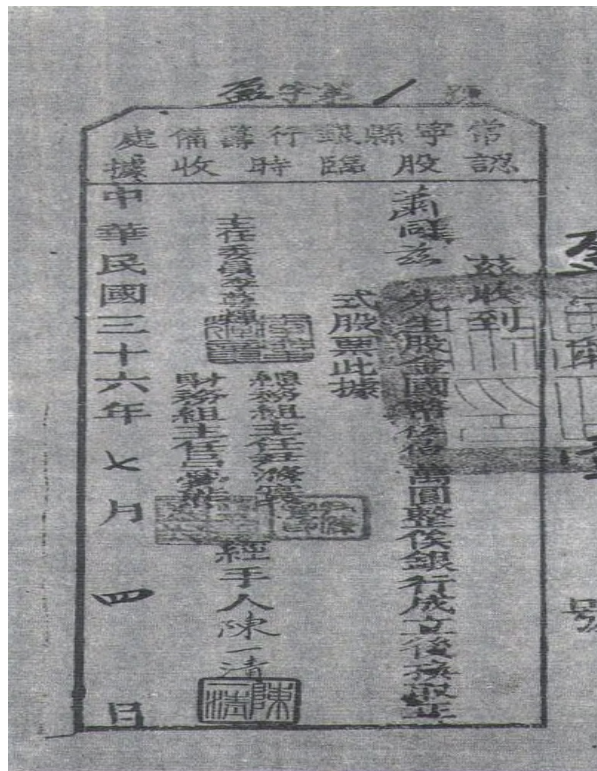 盈字第1號
常寧縣銀行籌備處
認股臨時收據
茲收到
蕭同茲先生股金國幣伍佰萬圓整俟銀行成立後換取正
式股票此據
主任委員李
總務組主任
財務組主任
經手人陳一清
陳一清
中華民國三十六年七月四日
盈
字第
號